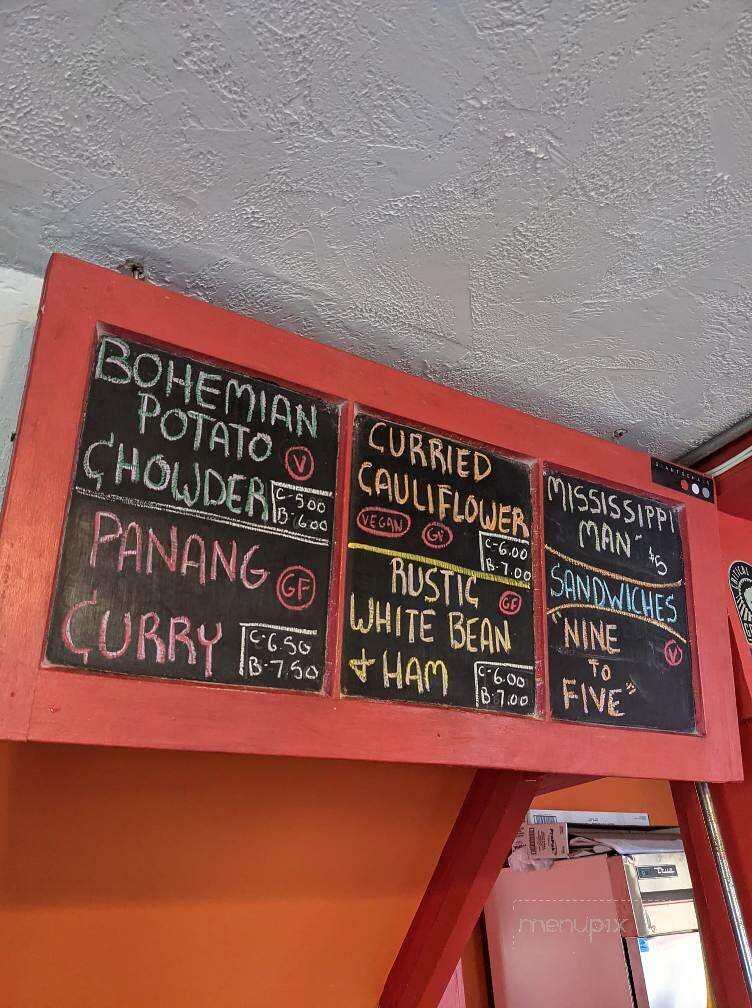 BOHEMIAN
POTATO V
CHOWDER
C-5.00
B-6.00
PANANG
GF
CURRY
C-6.50
B-7.50
CURRIED
CAULIFLOWER
VEGAN GF
C-6.00
B-7.00
RUSTIC GF
WHITE BEAN
& HAM
C-6.00
B-7.00
MISSISSIPPI
MAN" $5
SANDWICHES
"NINE
TO V
FIVE"
True
menupix